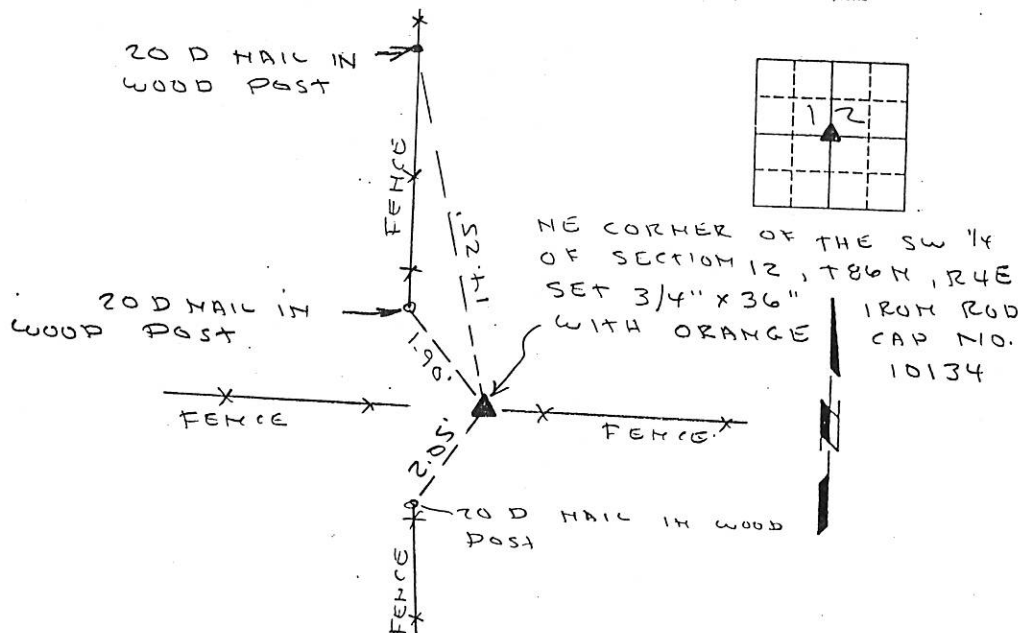 20 D NAIL IN
WOOD POST
FENCE
14.52'
12
NE CORNER OF THE SW 1/4
OF SECTION 12, T86N, R4E
SET 3/4" X 36" IRON ROD
WITH ORANGE CAP NO.
10134
20 D NAIL IN
WOOD POST
1.90'
FENCE
FENCE
2.05'
20 D NAIL IN WOOD
POST
FENCE